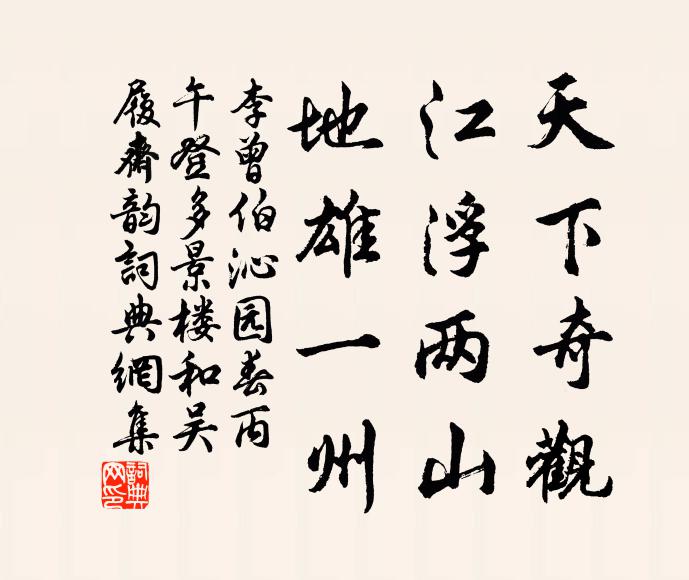 天下奇觀
江浮两山
地雄一州
李曾伯沁园春丙
午登多景楼和吴
履齋韵詞典網集
詞典网印